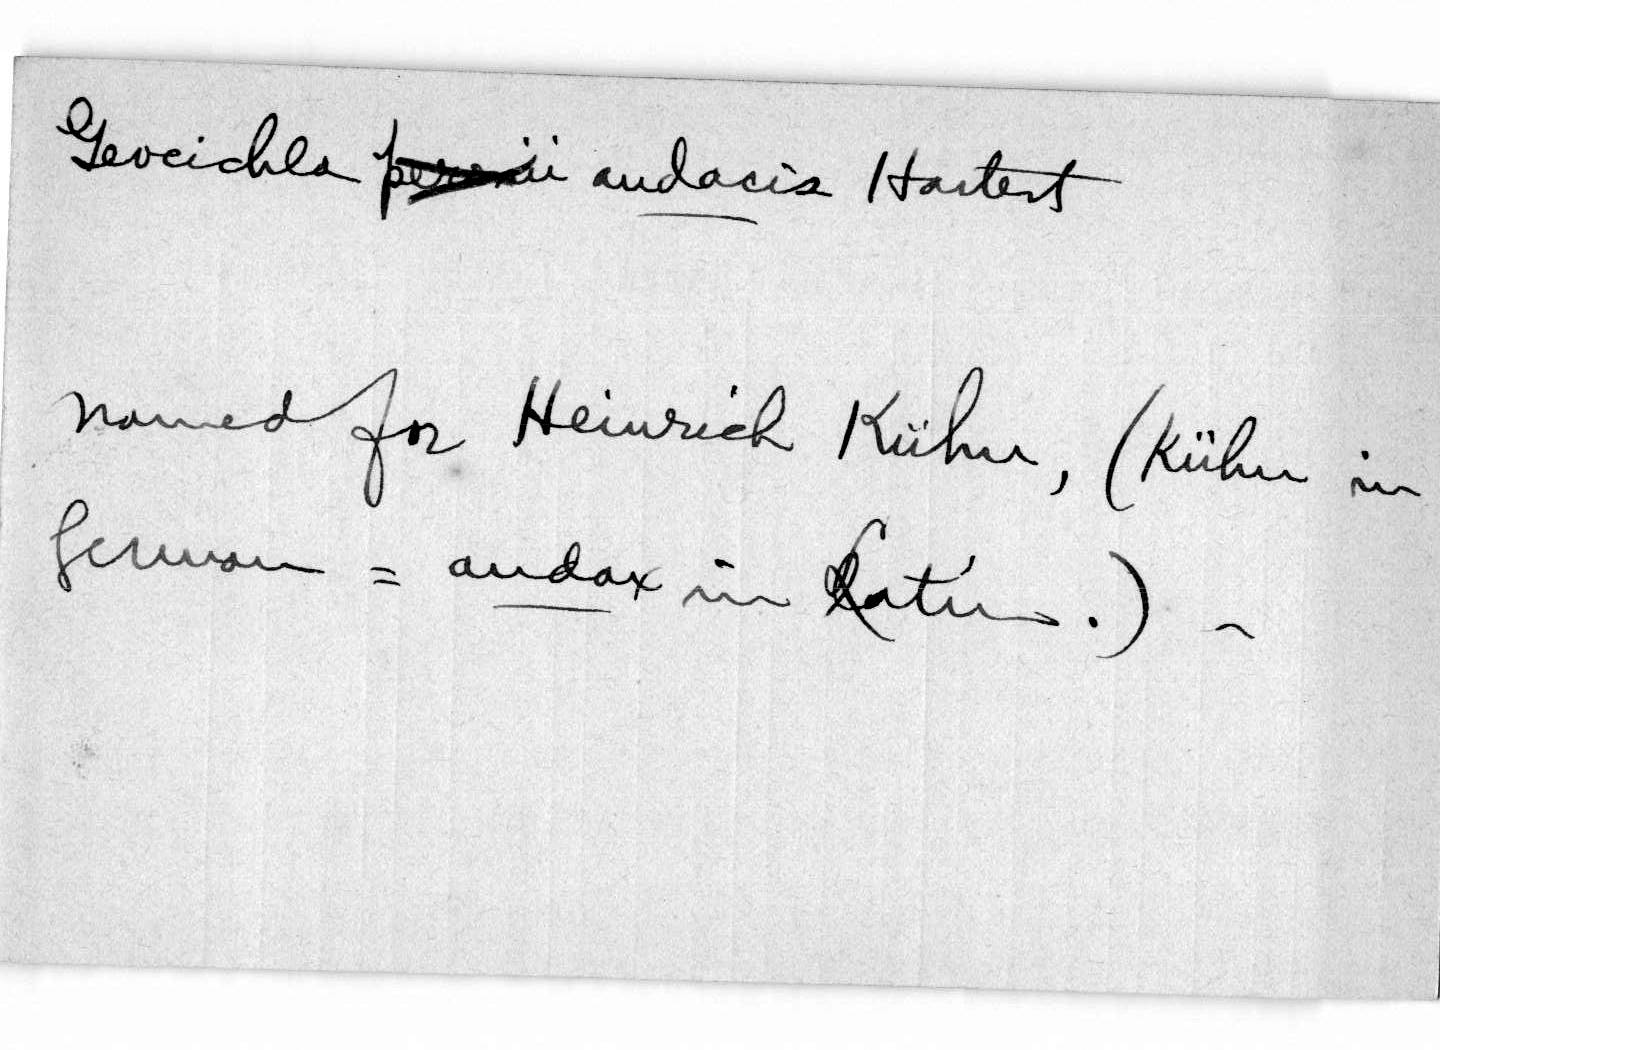 Geocichla audacis Hartert
named for Heinrich Kühn, (Kühn in
German = audax in Latin.) –